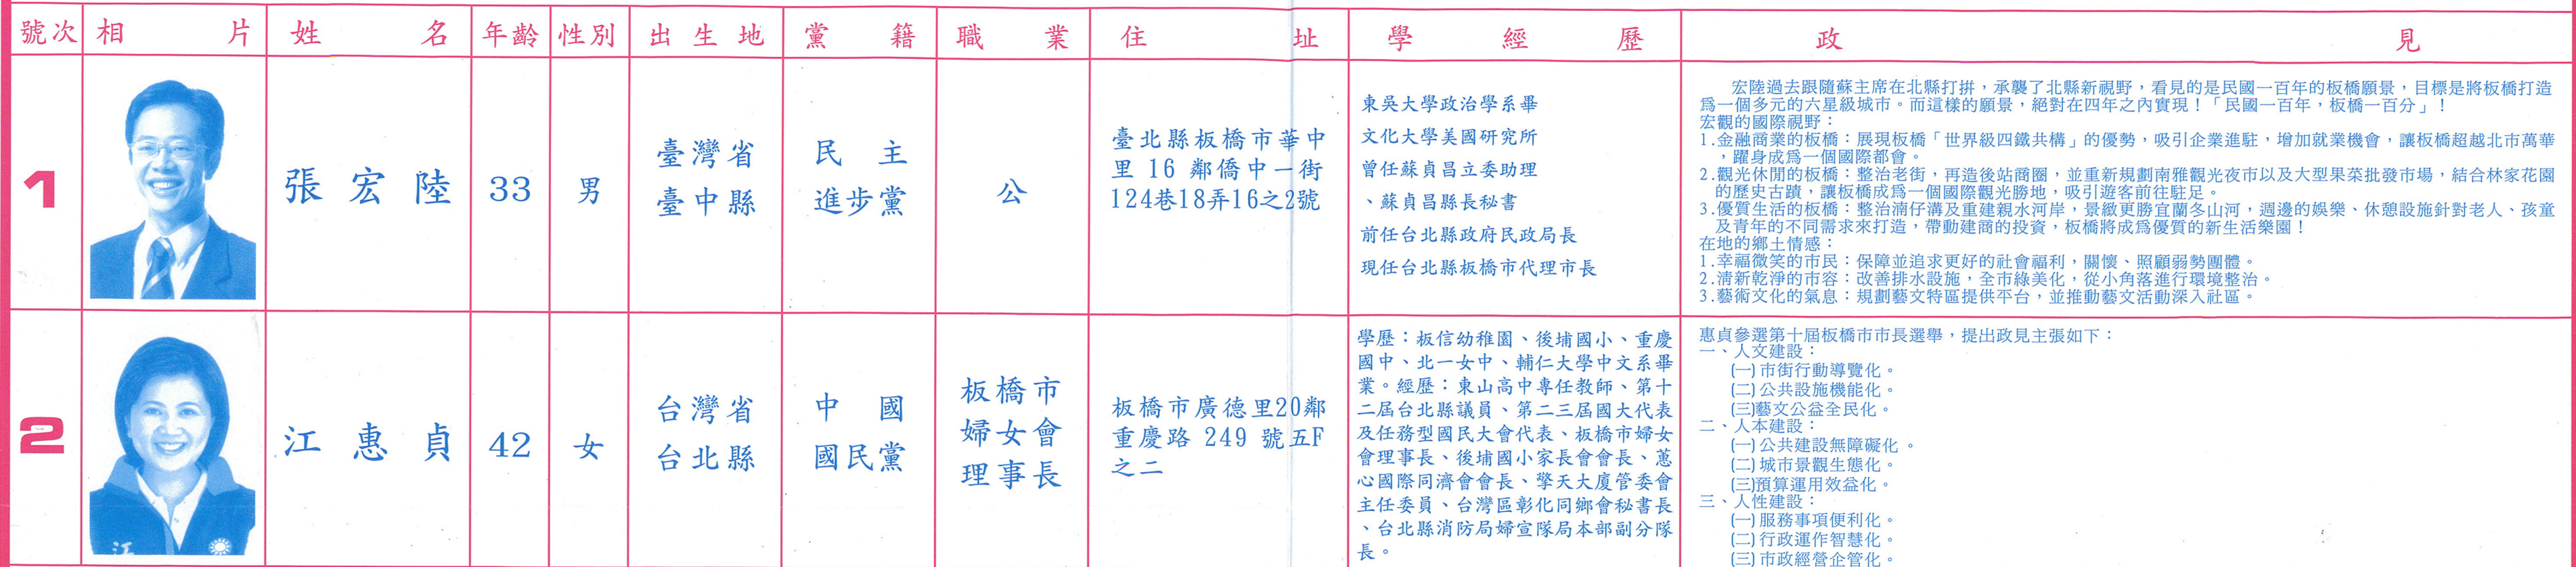 號次 相片 姓名 年齡 性別 出生地 黨籍 職業 住址 學經歷 政見
1
張宏陸
33
男
臺灣省
臺中縣
民主
進步黨
公
臺北縣板橋市華中
里 16 鄰僑中一街
124巷18弄16之2號
東吳大學政治學系畢
文化大學美國研究所
曾任蘇貞昌立委助理
、蘇貞昌縣長秘書
前任台北縣政府民政局長
現任台北縣板橋市代理市長
宏陸過去跟隨蘇主席在北縣打拚，承襲了北縣新視野，看見的是民國一百年的板橋願景，目標是將板橋打造
爲一個多元的六星級城市。而這樣的願景，絕對在四年之內實現！「民國一百年，板橋一百分」！
宏觀的國際視野：
1.金融商業的板橋：展現板橋「世界級四鐵共構」的優勢，吸引企業進駐，增加就業機會，讓板橋超越北市萬華
，躍身成爲一個國際都會。
2.觀光休閒的板橋：整治老街，再造後站商圈，並重新規劃南雅觀光夜市以及大型果菜批發市場，結合林家花園
的歷史古蹟，讓板橋成爲一個國際觀光勝地，吸引遊客前往駐足。
3.優質生活的板橋：整治湳仔溝及重建親水河岸，景緻更勝宜蘭冬山河，週邊的娛樂、休憩設施針對老人、孩童
及青年的不同需求來打造，帶動建商的投資，板橋將成爲優質的新生活樂園！
在地的鄉土情感：
1.幸福微笑的市民：保障並追求更好的社會福利，關懷、照顧弱勢團體。
2.清新乾淨的市容：改善排水設施，全市綠美化，從小角落進行環境整治。
3.藝術文化的氣息：規劃藝文特區提供平台，並推動藝文活動深入社區。
2
江
江惠貞
42
女
台灣省
台北縣
中國
國民黨
板橋市
婦女會
理事長
板橋市廣德里20鄰
重慶路 249 號五F
之二
學歷：板信幼稚園、後埔國小、重慶
國中、北一女中、輔仁大學中文系畢
業。經歷：東山高中專任教師、第十
二屆台北縣議員、第二三屆國大代表
及任務型國民大會代表、板橋市婦女
會理事長、後埔國小家長會會長、蕙
心國際同濟會會長、擎天大廈管委會
主任委員、台灣區彰化同鄉會秘書長
、台北縣消防局婦宣隊局本部副分隊
長。
惠貞參選第十屆板橋市市長選舉，提出政見主張如下：
一、人文建設：
(一)市街行動導覽化。
(二)公共設施機能化。
(三)藝文公益全民化。
二、人本建設：
(一)公共建設無障礙化。
(二)城市景觀生態化。
(三)預算運用效益化。
三、人性建設：
(一)服務事項便利化。
(二)行政運作智慧化。
(三)市政經營企管化。